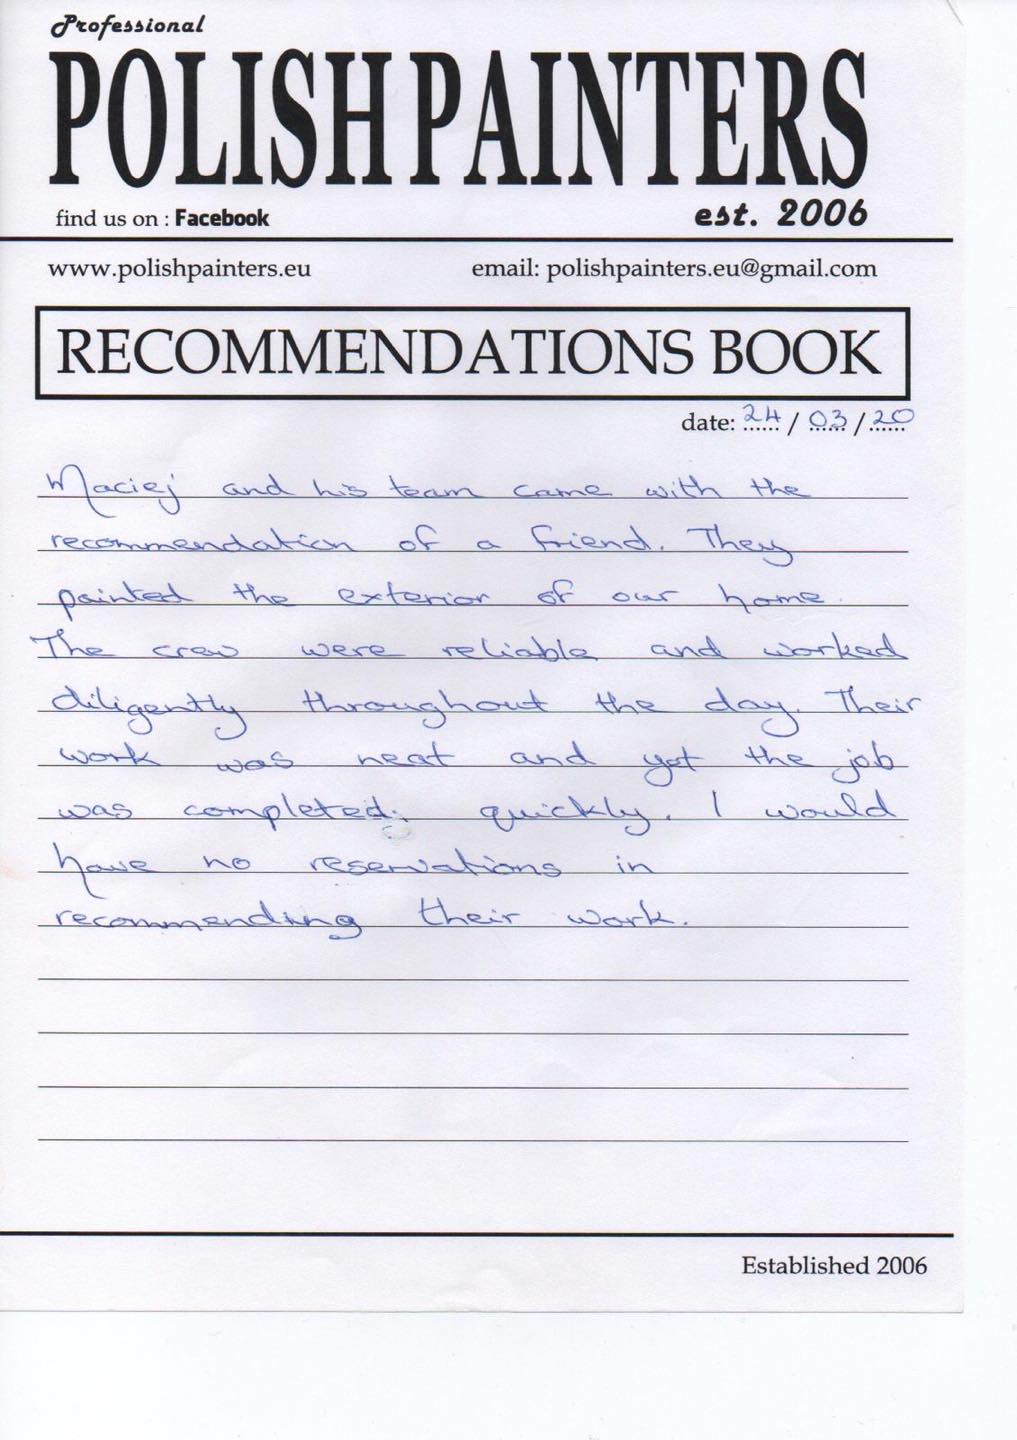 Professional
POLISH PAINTERS
find us on : Facebook
est. 2006
www.polishpainters.eu
email: polishpainters.eu@gmail.com
RECOMMENDATIONS BOOK
date: 24 / 03 / 20
Maciej and his team came with the
recommendation of a friend. They
painted the exterior of our home.
The crew were reliable and worked
diligently throughout the day. Their
work was neat and yet the job
was completed quickly. I would
have no reservations in
recommending their work.
Established 2006